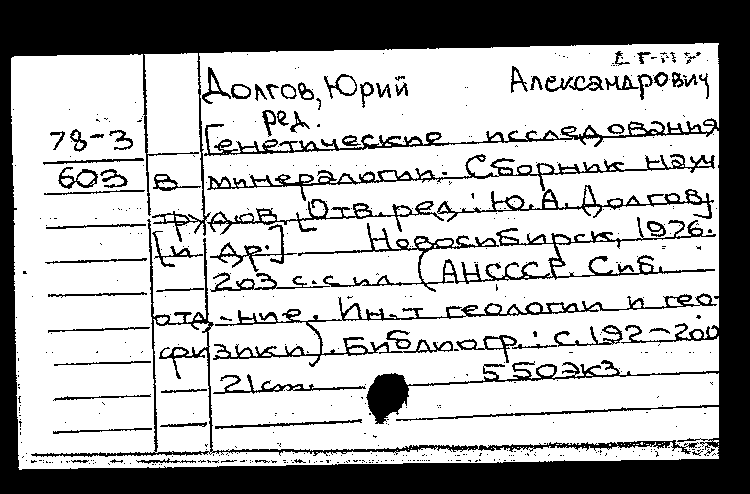 Долгов, Юрий Александрович
ред.
78-3 Генетические исследования
603 в минералогии. Сборник науч
трудов. [Отв. ред.: Ю.А. Долгов,
[и др.] Новосибирск, 1976.
203 с. с ил. (АНСССР. Сиб.
отд-ние. Ин-т геологии и гео-
физики). Библиогр.: с. 192-200
21 cm. 550экз.